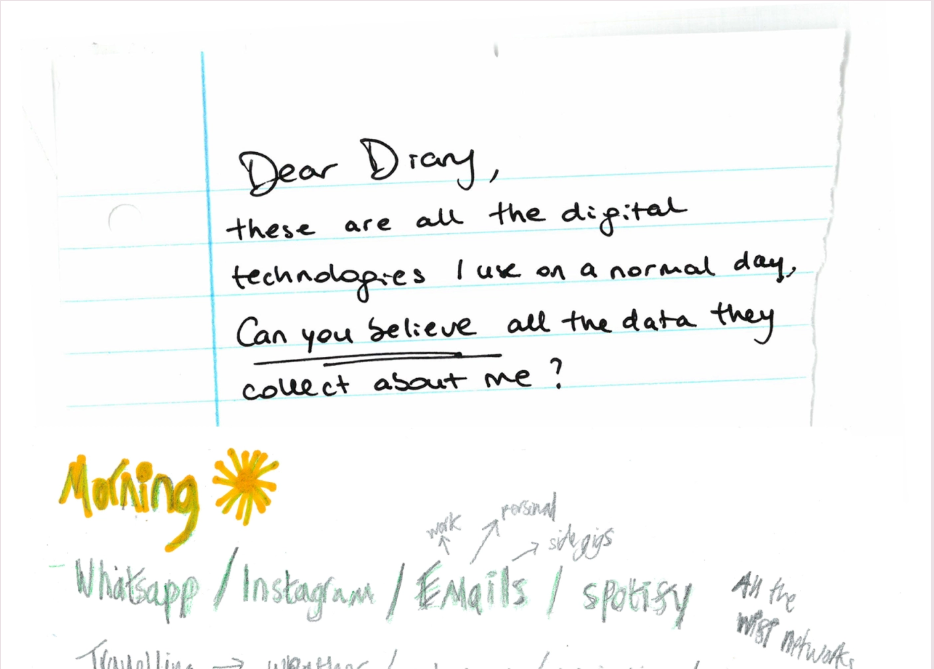 Dear Diary,
these are all the digital
technologies I use on a normal day,
Can you believe all the data they
collect about me?
Morning
work
personal
side gigs
Whatsapp / Instagram / Emails / spotify
All the
wifi networks
Travelling → weather /